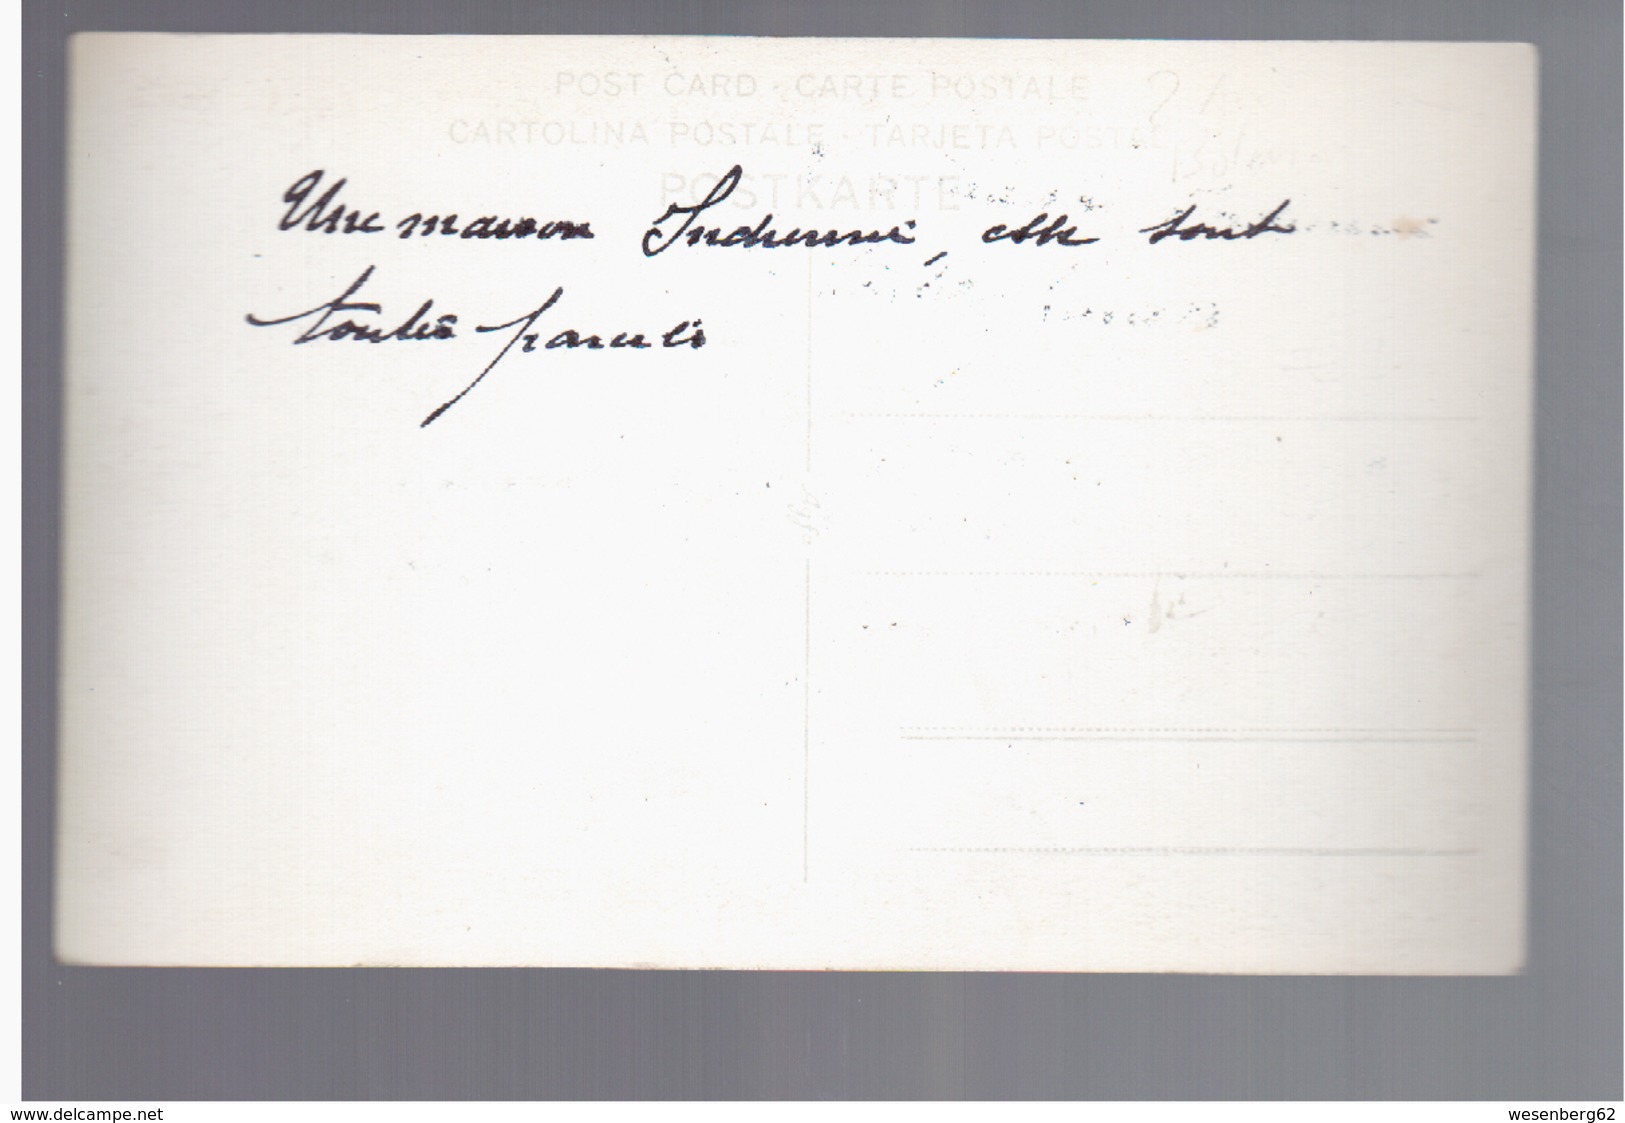 POST CARD · CARTE POSTALE
CARTOLINA POSTALE · TARJETA POSTAL
POSTKARTE
Une maison Indienne, elle sont
toutes pareils
Agfa
www.delcampe.net
wesenberg62